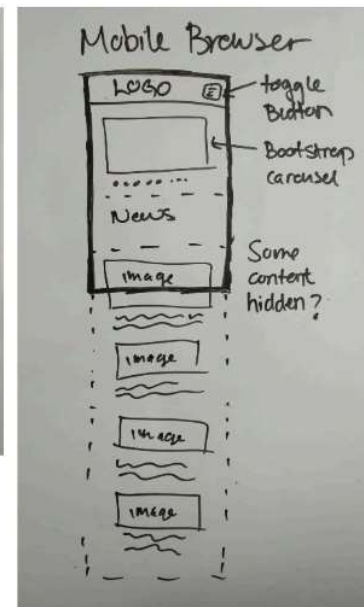 Mobile Browser
LOGO
toggle
Button
Bootstrap
carousel
News
Some
content
hidden?
image
image
image
image